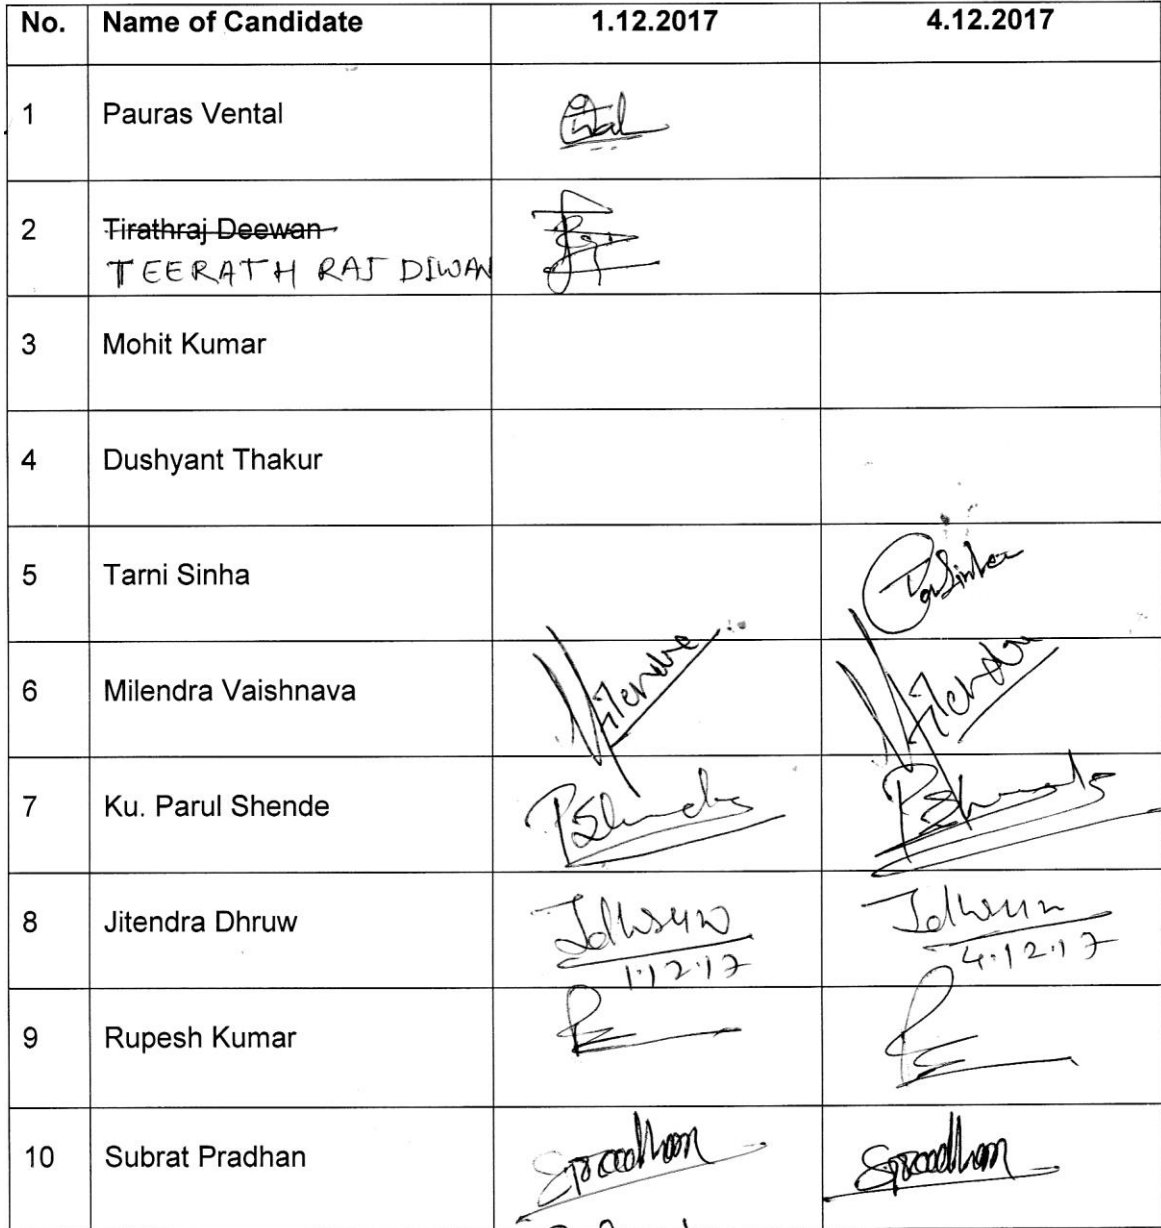 No. Name of Candidate 1.12.2017 4.12.2017
1 Pauras Vental
2 Tirathraj Deewan
TEERATH RAJ DIWAN
3 Mohit Kumar
4 Dushyant Thakur
5 Tarni Sinha
6 Milendra Vaishnava
7 Ku. Parul Shende PShende
8 Jitendra Dhruw
1.12.17 4.12.17
9 Rupesh Kumar
10 Subrat Pradhan SPradhan SPradhan